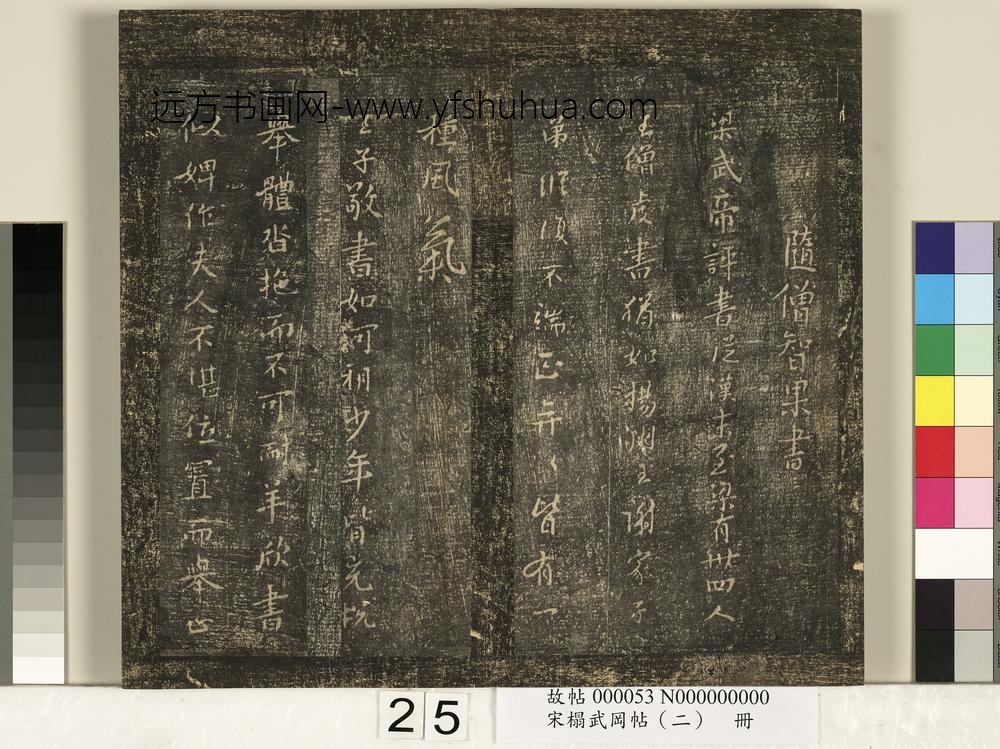 远方书画网-www.yfshuhua.com
隨僧智果書
梁武帝評書從漢末至梁有卅四人
王僧虔書猶如揚州王謝家子
弟縱復不端正奕々皆有一
種風氣
王子敬書如河朔少年皆充悅
舉體沓拖而不可耐羊欣書
似婢作夫人不堪位置而舉止
25
故帖 000053 N000000000
宋榻武岡帖（二） 冊